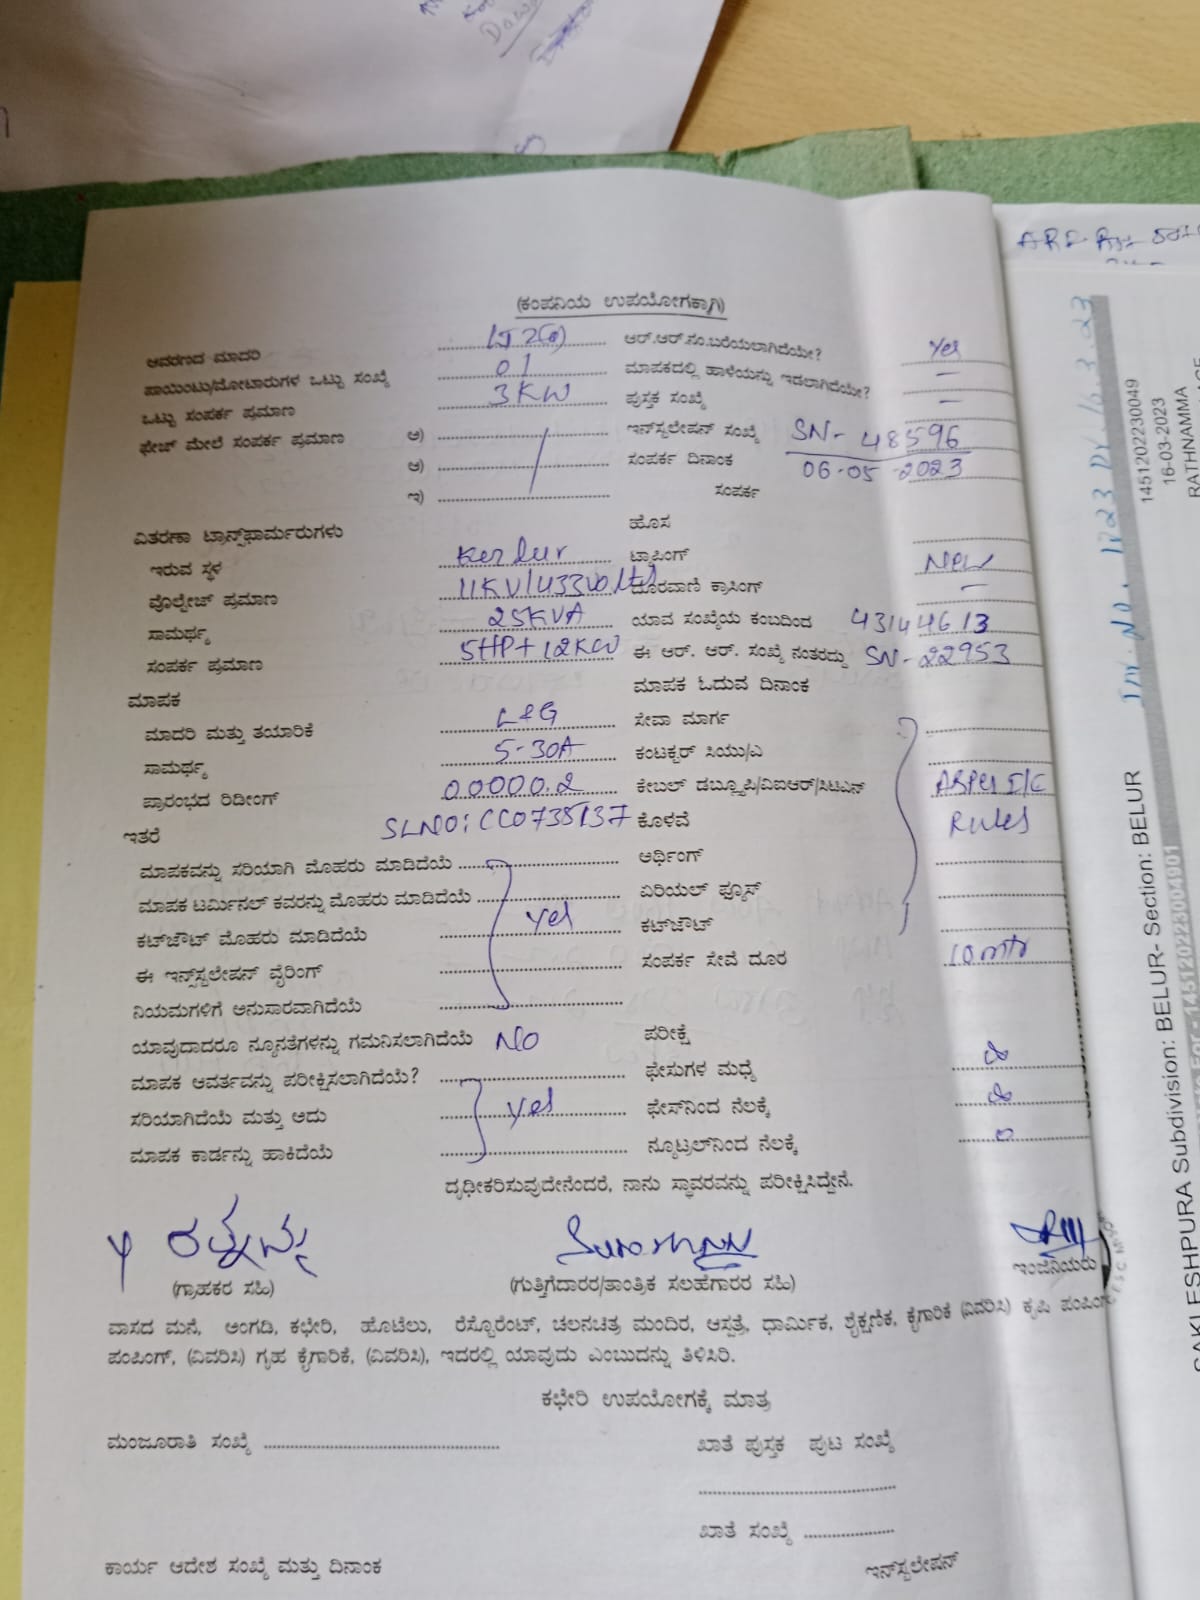 (ಕಂಪನಿಯ ಉಪಯೋಗಕ್ಕಾಗಿ)
ಆವರಣದ ಮಾದರಿ ಆರ್.ಆರ್.ನಂ.ಬರೆಯಲಾಗಿದೆಯೇ? yes
ಪಾಯಿಂಟು/ಮೋಟಾರುಗಳ ಒಟ್ಟು ಸಂಖ್ಯೆ 01 ಮಾಪಕದಲ್ಲಿ ಹಾಳೆಯನ್ನು ಇಡಲಾಗಿದೆಯೇ? –
ಒಟ್ಟು ಸಂಪರ್ಕ ಪ್ರಮಾಣ 3KW ಪುಸ್ತಕ ಸಂಖ್ಯೆ –
ಫೇಜ್ ಮೇಲೆ ಸಂಪರ್ಕ ಪ್ರಮಾಣ ಅ) ಇನ್‌ಸ್ಟಲೇಷನ್ ಸಂಖ್ಯೆ SN- 48596
ಆ) ಸಂಪರ್ಕ ದಿನಾಂಕ 06-05-2023
ಇ) ಸಂಪರ್ಕ
ವಿತರಣಾ ಟ್ರಾನ್ಸ್‌ಫಾರ್ಮರುಗಳು ಹೊಸ
ಇರುವ ಸ್ಥಳ ಟ್ಯಾಪಿಂಗ್ New
ವೋಲ್ಟೇಜ್ ಪ್ರಮಾಣ 11KV/433Volts ದೂರವಾಣಿ ಕ್ರಾಸಿಂಗ್ –
ಸಾಮರ್ಥ್ಯ 25KVA ಯಾವ ಸಂಖ್ಯೆಯ ಕಂಬದಿಂದ 43144613
ಸಂಪರ್ಕ ಪ್ರಮಾಣ 5HP+12KW ಈ ಆರ್. ಆರ್. ಸಂಖ್ಯೆ ನಂತರದ್ದು SN-22953
ಮಾಪಕ ಮಾಪಕ ಓದುವ ದಿನಾಂಕ
ಮಾದರಿ ಮತ್ತು ತಯಾರಿಕೆ L&G ಸೇವಾ ಮಾರ್ಗ
ಸಾಮರ್ಥ್ಯ 5-30A ಕಂಟಕ್ಟರ್ ಸಿಯು/ಎ
ಪ್ರಾರಂಭದ ರಿಡೀಂಗ್ 00000.2 ಕೇಬಲ್ ಡಬ್ಲ್ಯೂಪಿ/ವಿಐಆರ್/ಸಿಟಿಎನ್ AsPer I/C
ಇತರೆ SLNO: ಕೊಳವೆ Rules
ಮಾಪಕವನ್ನು ಸರಿಯಾಗಿ ಮೊಹರು ಮಾಡಿದೆಯೆ ಅರ್ಥಿಂಗ್
ಮಾಪಕ ಟರ್ಮಿನಲ್ ಕವರನ್ನು ಮೊಹರು ಮಾಡಿದೆಯೆ ಏರಿಯಲ್ ಫ್ಯೂಸ್
ಕಟ್‌ಜೌಟ್ ಮೊಹರು ಮಾಡಿದೆಯೆ yes ಕಟ್‌ಜೌಟ್
ಈ ಇನ್ಸ್‌ಸ್ಟಲೇಷನ್ ವೈರಿಂಗ್ ಸಂಪರ್ಕ ಸೇವೆ ದೂರ 10mtr
ನಿಯಮಗಳಿಗೆ ಅನುಸಾರವಾಗಿದೆಯೆ
ಯಾವುದಾದರೂ ನ್ಯೂನತೆಗಳನ್ನು ಗಮನಿಸಲಾಗಿದೆಯೆ NO ಪರೀಕ್ಷೆ
ಮಾಪಕ ಆವರ್ತವನ್ನು ಪರೀಕ್ಷಿಸಲಾಗಿದೆಯೆ? ಫೇಸುಗಳ ಮಧ್ಯೆ ∞
ಸರಿಯಾಗಿದೆಯೆ ಮತ್ತು ಅದು yes ಫೇಸ್‌ನಿಂದ ನೆಲಕ್ಕೆ ∞
ಮಾಪಕ ಕಾರ್ಡನ್ನು ಹಾಕಿದೆಯೆ ನ್ಯೂಟ್ರಲ್‌ನಿಂದ ನೆಲಕ್ಕೆ 0
ದೃಢೀಕರಿಸುವುದೇನೆಂದರೆ, ನಾನು ಸ್ಥಾವರವನ್ನು ಪರೀಕ್ಷಿಸಿದ್ದೇನೆ.
(ಗ್ರಾಹಕರ ಸಹಿ) (ಗುತ್ತಿಗೆದಾರರ/ತಾಂತ್ರಿಕ ಸಲಹೆಗಾರರ ಸಹಿ) ಇಂಜಿನಿಯರು
ವಾಸದ ಮನೆ, ಅಂಗಡಿ, ಕಛೇರಿ, ಹೊಟೆಲು, ರೆಸ್ಟೊರೆಂಟ್, ಚಲನಚಿತ್ರ ಮಂದಿರ, ಆಸ್ಪತ್ರೆ, ಧಾರ್ಮಿಕ, ಶೈಕ್ಷಣಿಕ, ಕೈಗಾರಿಕೆ (ವಿವರಿಸಿ) ಕೃಷಿ ಪಂಪಿಂಗ್
ಪಂಪಿಂಗ್, (ವಿವರಿಸಿ) ಗೃಹ ಕೈಗಾರಿಕೆ, (ವಿವರಿಸಿ), ಇದರಲ್ಲಿ ಯಾವುದು ಎಂಬುದನ್ನು ತಿಳಿಸಿರಿ.
ಕಛೇರಿ ಉಪಯೋಗಕ್ಕೆ ಮಾತ್ರ
ಮಂಜೂರಾತಿ ಸಂಖ್ಯೆ ಖಾತೆ ಪುಸ್ತಕ ಪುಟ ಸಂಖ್ಯೆ
ಖಾತೆ ಸಂಖ್ಯೆ
ಕಾರ್ಯ ಆದೇಶ ಸಂಖ್ಯೆ ಮತ್ತು ದಿನಾಂಕ ಇನ್‌ಸ್ಟಲೇಷನ್
1451202230049
16-03-2023
RATHNAMMA
ESHPURA Subdivision: BELUR- Section: BELUR
For -1451202230049​01